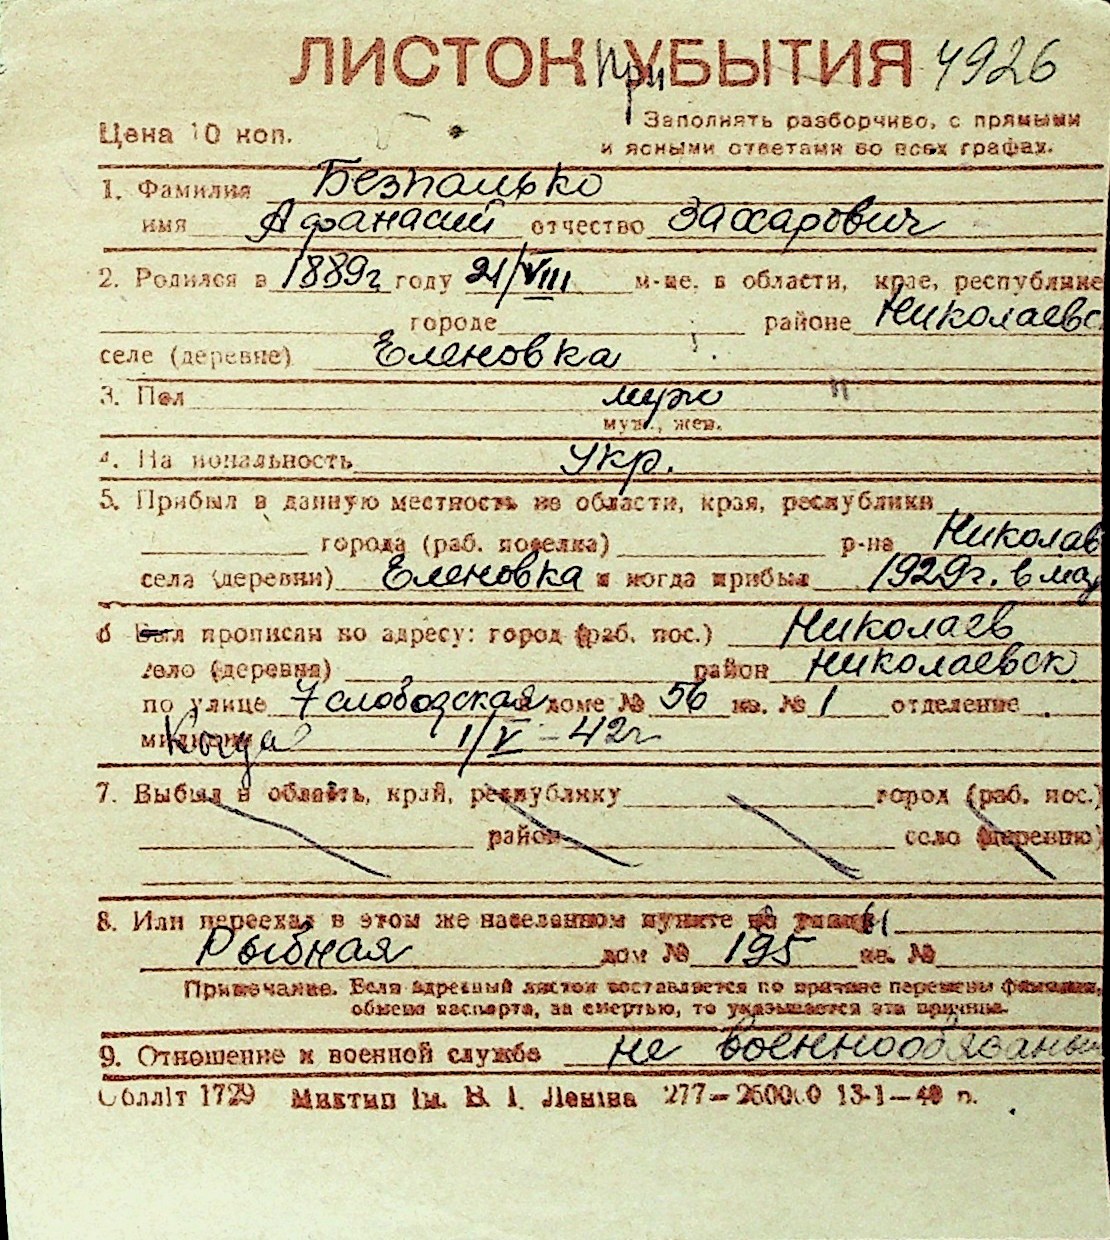 ЛИСТОК При УБЫТИЯ 4926
Цена 10 коп.
Заполнять разборчиво, с прямыми
и ясными ответами во всех графах.
1. Фамилия Безпалько
имя Афанасий отчество Захарович
2. Родился в 1889г году 21/VIII м-це, в области, крае, республике
городе районе Николаевс
селе (деревне) Еленовка
3. Пол муж
муж., жен.
4. Национальность укр.
5. Прибыл в данную местность из области, края, республики
города (раб. поселка) р-на Николаев
села (деревни) Еленовка и когда прибыл 1929г. в мар
6 Был прописан по адресу: город (раб. пос.) Николаев
село (деревня) район Николаевск
по улице 7 слободская доме № 56 кв. № 1 отделение
милиции Когда 1/V-42г
7. Выбыл в область, край, республику город (раб. пос.)
район село (деревню)
8. Или переехал в этом же населенном пункте на улицу
Рыбная дом № 195 кв. №
Примечание. Если адресный листок составляется по причине перемены фамилии,
обмена паспорта, за смертью, то указывается эта причина.
9. Отношение к военной службе не военнообязаный
Обллiт 1729 Миктип iм. В. I. Ленiна 277—260000 13-1—40 р.